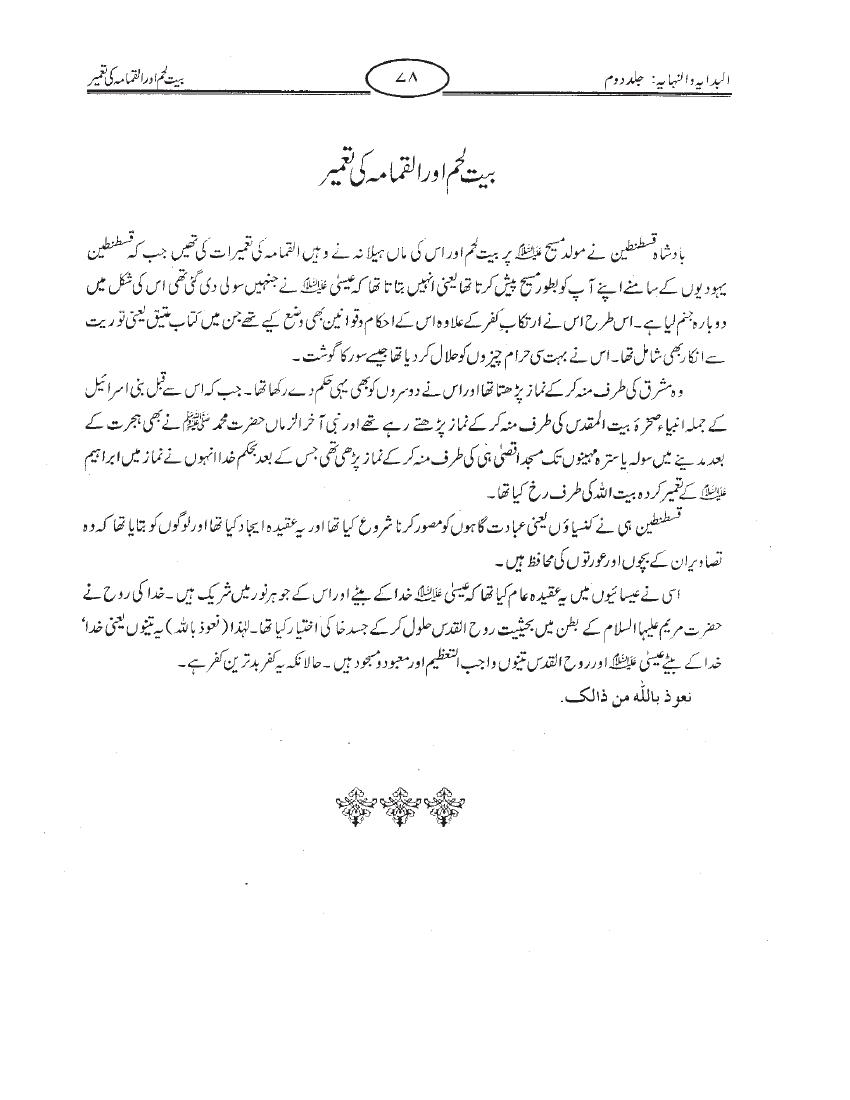 البدایہ والنہایہ: جلد دوم
۷۸
بیت لحم اور القمامہ کی تعمیر
بیت لحم اور القمامہ کی تعمیر
بادشاہ قسطنطین نے مولد مسیح علیہ السلام پر بیت لحم اور اس کی ماں ہیلانہ نے وہیں القمامہ کی تعمیرات کی تھیں جب کہ قسطنطین
یہودیوں کے سامنے اپنے آپ کو بطور مسیح پیش کرتا تھا یعنی انہیں بتاتا تھا کہ عیسیٰ علیہ السلام نے جنہیں سولی دی گئی تھی اس کی شکل میں
دوبارہ جنم لیا ہے۔ اس طرح اس نے ارتکاب کفر کے علاوہ اس کے احکام و قوانین بھی وضع کیے تھے جن میں کتاب عتیق یعنی توریت
سے انکار بھی شامل تھا۔ اس نے بہت سی حرام چیزوں کو حلال کر دیا تھا جیسے سور کا گوشت۔
وہ مشرق کی طرف منہ کر کے نماز پڑھتا تھا اور اس نے دوسروں کو بھی یہی حکم دے رکھا تھا۔ جب کہ اس سے قبل بنی اسرائیل
کے جملہ انبیاء صخرۂ بیت المقدس کی طرف منہ کر کے نماز پڑھتے رہے تھے اور نبی آخر الزماں حضرت محمد ﷺ نے بھی ہجرت کے
بعد مدینے میں سولہ یا سترہ مہینوں تک مسجد اقصیٰ ہی کی طرف منہ کر کے نماز پڑھی تھی جس کے بعد بحکم خدا انہوں نے نماز میں ابراہیم
علیہ السلام کے تعمیر کردہ بیت اللہ کی طرف رخ کیا تھا۔
قسطنطین ہی نے کنیساؤں یعنی عبادت گاہوں کو مصور کرنا شروع کیا تھا اور یہ عقیدہ ایجاد کیا تھا اور لوگوں کو بتایا تھا کہ وہ
تصاویر ان کے بچوں اور عورتوں کی محافظ ہیں۔
اسی نے عیسائیوں میں یہ عقیدہ عام کیا تھا کہ عیسیٰ علیہ السلام خدا کے بیٹے اور اس کے جوہر نور میں شریک ہیں۔ خدا کی روح نے
حضرت مریم علیہا السلام کے بطن میں بحیثیت روح القدس حلول کر کے جسد خاکی اختیار کیا تھا۔ لہٰذا (نعوذ باللہ) یہ تینوں یعنی خدا'
خدا کے بیٹے عیسیٰ علیہ السلام اور روح القدس تینوں واجب التعظیم اور معبود و مسجود ہیں۔ حالانکہ یہ کفر بدترین کفر ہے۔
نعوذ بالله من ذالک.